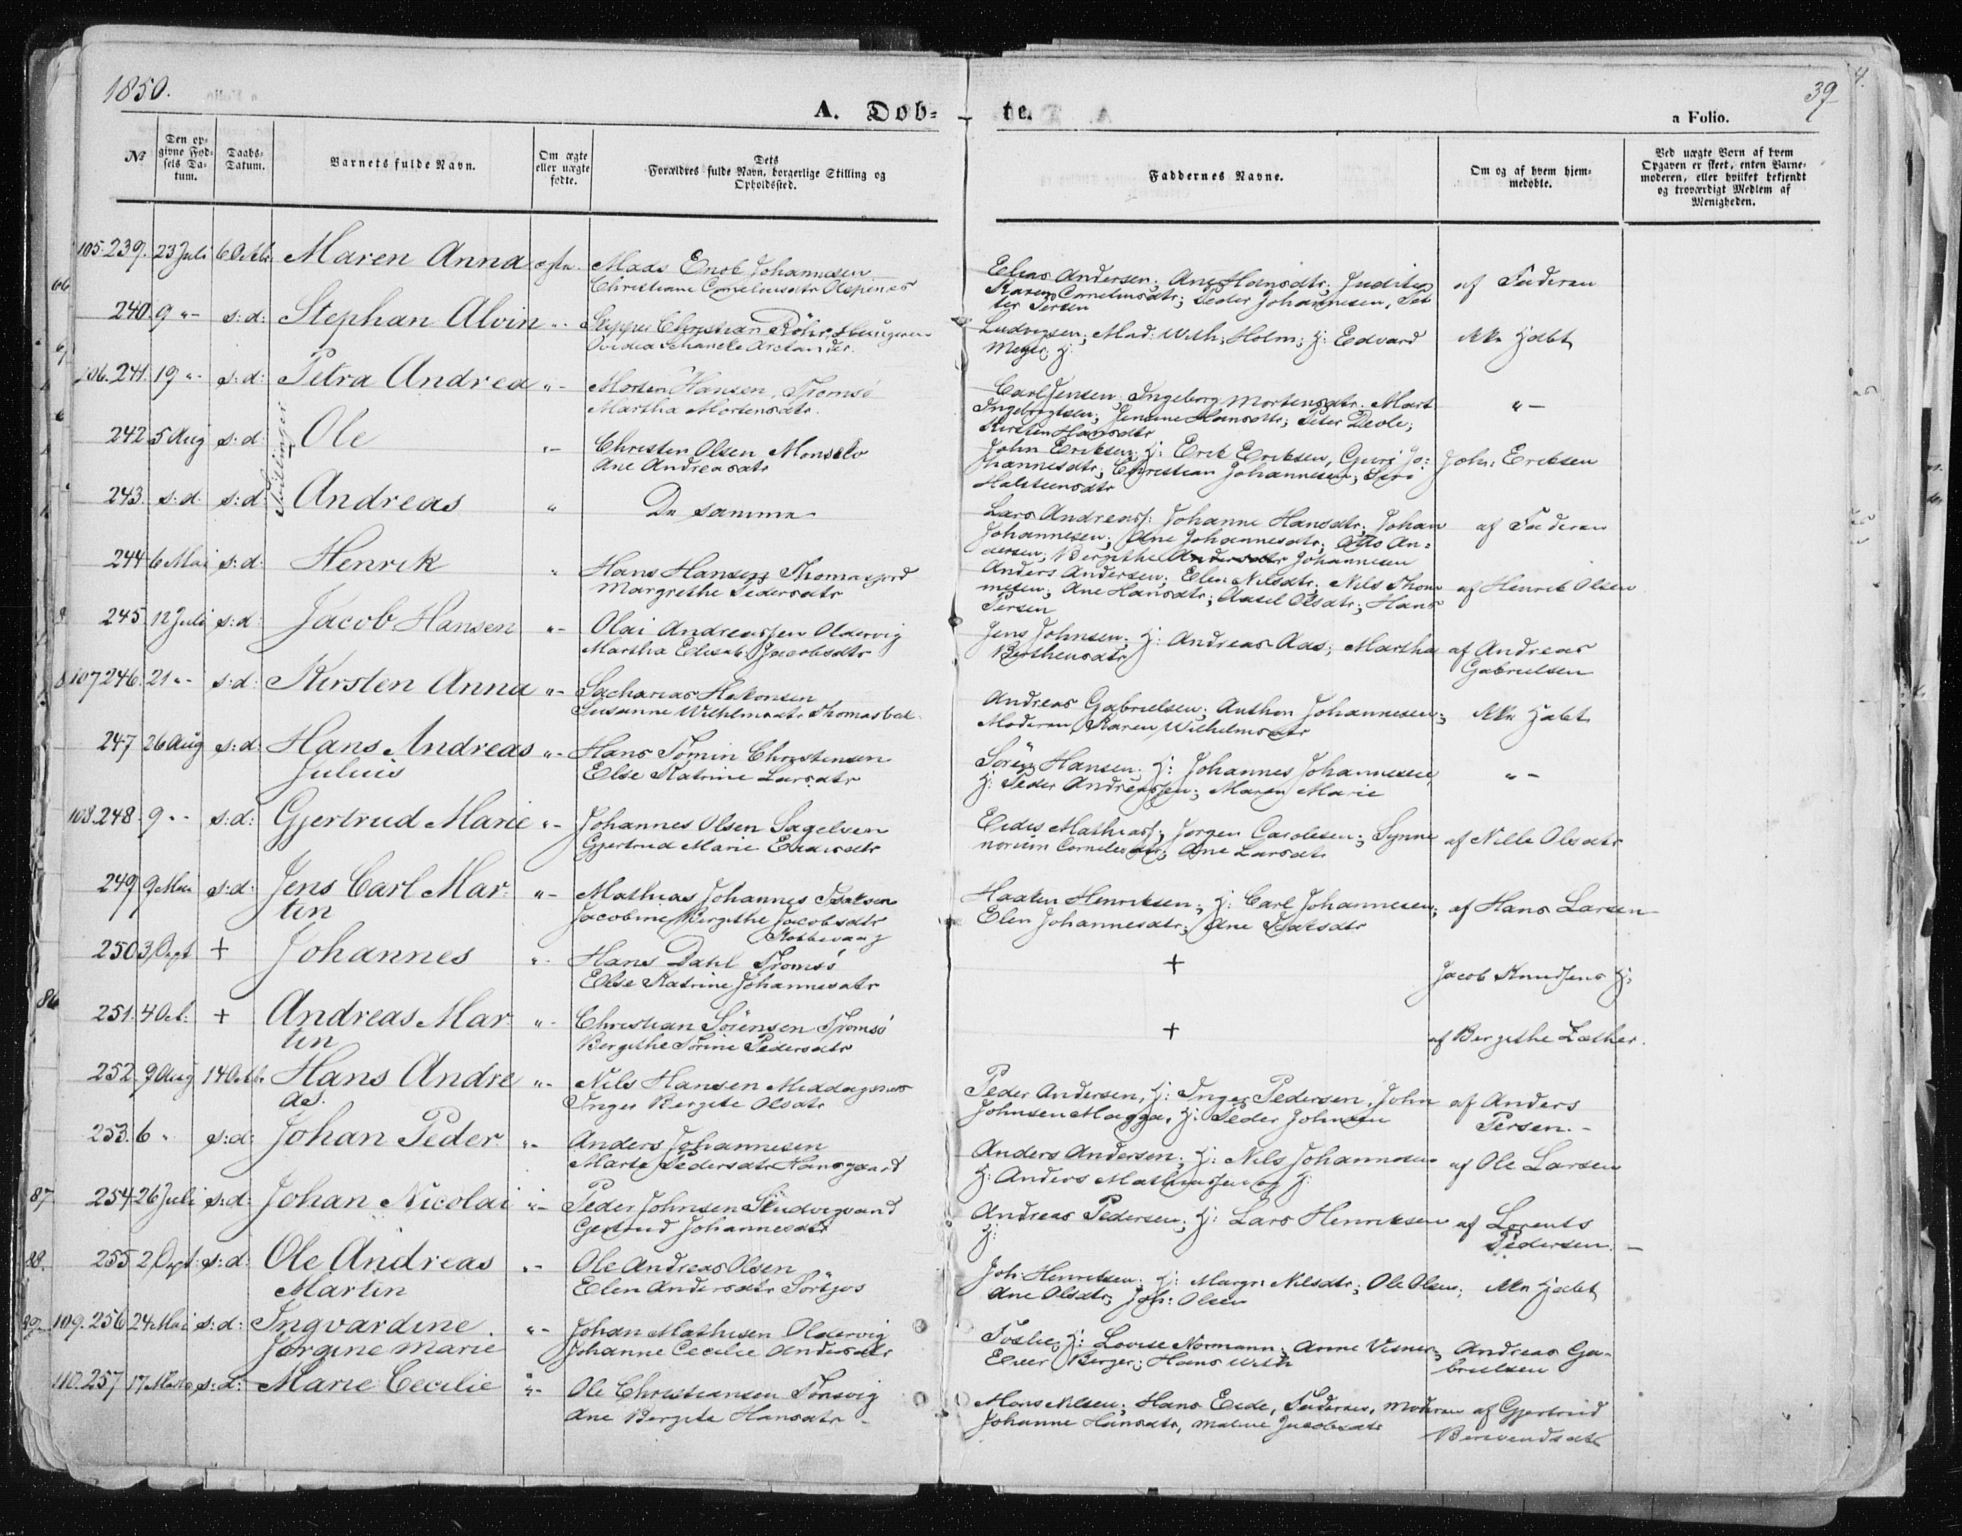 1850.
39
4.
A. Dob-
te.
a Folio.
No
Den op-
givne Fød-
sels Da-
tum.
Daabs-
Datum.
Barnets fulde Navn.
Om ægte
eller uægte
fødte.
Dets
Forældres fulde Navn, borgerlige Stilling og
Opholdssted.
Faddernes Navne.
Om og af hvem hjem-
medøbte.
Ved uægte Børn af hvem
Opgaven er skeet, enten Barne-
moderen, eller hvilket bekjendt
og troværdigt Medlem af
Menigheden.
105. 239. 23 Juli 6 Octbr. Maren Anna Mads Enok Johannesen
Christiane Corneliusdtr
Elias Andersen; Ane Hansdtr;
Karen Cornelius dtr; Peder Johannesen,
af Faderen
66
240. 9 "- s: d: Stephan Alvin "- Christian
Ovidia Schancke Arctander.
Ludvigsen; Mad: With; Holm; H: Edvard
Meyer; H:
Ikke Hjdbt
106. 241. 19 "- s: d: Petra Andrea "- Morten Hansen, Tromsö
Martha Mortensdtr.
Carl Jensen; Ingeborg Mortensdtr. Mart
Ingebrigtsen; Hansdtr; Peter Devle;
Kirsten Hansdtr
"-
242 5 Aug s: d: Ole "- Christen Olsen Monselv
Ane Andreasdtr
Tvillinger
John Eriksen; H: Erik Eriksen, Guri Jo-
hannesdtr; Christian Johannesen; Siri
Halsteensdtr
John: Eriksen
243. s: d. s: d: Andreas " De samme
Lars Andreas; Johanne Hansdtr; Johan
Johannesen; Ane Johannesdtr; Otto An-
dersen; Johannesen
af Faderen
244 6 Mai s: d: Henrik " Hans Hansen Thomasjord
Margrethe Pedersdtr
Anders Andersen; Elen Nilsdtr; Nils Thom
mesen; Ane Hansdtr; Olsdtr; Hans
Persen
af Henrik Olsen
245. 12 Juli s: d: Jacob Hansen "- Olai Andreassen Oldervig
Martha Elisab: Jacobsdtr
Jens Johnsen; H: Andreas Aas; Martha
Berthensdtr
af Andreas
Gabrielsen
107 246. 21 "- s: d: Kirsten Anna "- Sacharias Hakonsen
Susanne Wilhlmsdtr
Andreas Gabrielsen; Anthon Johannesen;
Moderen, Karen Wilhelmsdtr
Ikke Hjdbt
247 26 Aug s: d: Hans Andreas
Julius
"- Hans Tomin Christensen
Else Katrine Larsdtr
Sören Hansen; H: Johannes Johannesen,
H: Peder Andreassen; Maren Marie
"-
108. 248. 9 "- s: d: Gjertrud Marie "- Johannes Olsen Sagelven
Gjertrud Marie
Mathias; Jörgen Carolesen;
Ane Larsdtr
af Nille Olsdtr
249 9 Mai s: d: Jens Carl Mar-
tin
"- Mathias Johannes Isaksen
Jacobine Bergithe Jacobsdtr
Haaken Henriksen; H: Carl Johannesen;
Elen Johannesdtr; Ane Isaksdtr
af Hans Larsen
250 3 Sept + Johannes "- Hans Dahl Tromsö
Else Katrine Johannesdtr
+
Jacob Knudsens H:
86
251. 4 Oct: + Andreas Mar-
tin
"- Christian Sörensen Tromsö
Bergithe Sörine Pedersdtr
+
af Bergithe Læther.
252. 9 Aug 14 Octbr. Hans Andre
as.
"- Nils Hansen Middagsnes
Inger Bergite Olsdtr
Peder Andersen, H: Inger Pedersen, John
Johnsen Magga, H: Peder Johnsen
af Anders
Persen. -
253. 6 " s: d: Johan Peder "- Anders Johannesen
Marte Pedersdtr Hansgaard
Anders Andersen; H: Nils Johannesen
H: Anders Mathiassen og H:
af Ole Larsen
87
254 26 Juli s: d: Johan Nicolai "- Peder Johnsen
Gjertrud Johannesdtr
Andreas Pedersen; H: Lars Henriksen
H:
af Lorents
Pedersen. -
88.
255 2 Sept. s: d: Ole Andreas
Martin
"- Ole Andreas Olsen
Elen Andersdtr
Joh: Henriksen; H: Margr: Nilsdtr; Ole Olsen;
Ane Olsdtr; Joh: Olsen
Ikke Hjdbt
109. 256 24 Mai s: d: Ingvardine
Jörgine Marie
"- Johan Mathisen Oldervig
Johanne Cecilie Andersdtr
H: Lovise Normann; Anne Visner;
Berger; Hans With
Andreas Ga-
brielsen
110. 257 17 Marts s: d: Marie Cecilie "- Ole Christiansen Tönsvig
Ane Bergite Hansdtr -
Mons Nilsen; Hans Eide, Faderen, Moderen
Johanne Hansdtr, Jacobsdtr
af Gjertrud